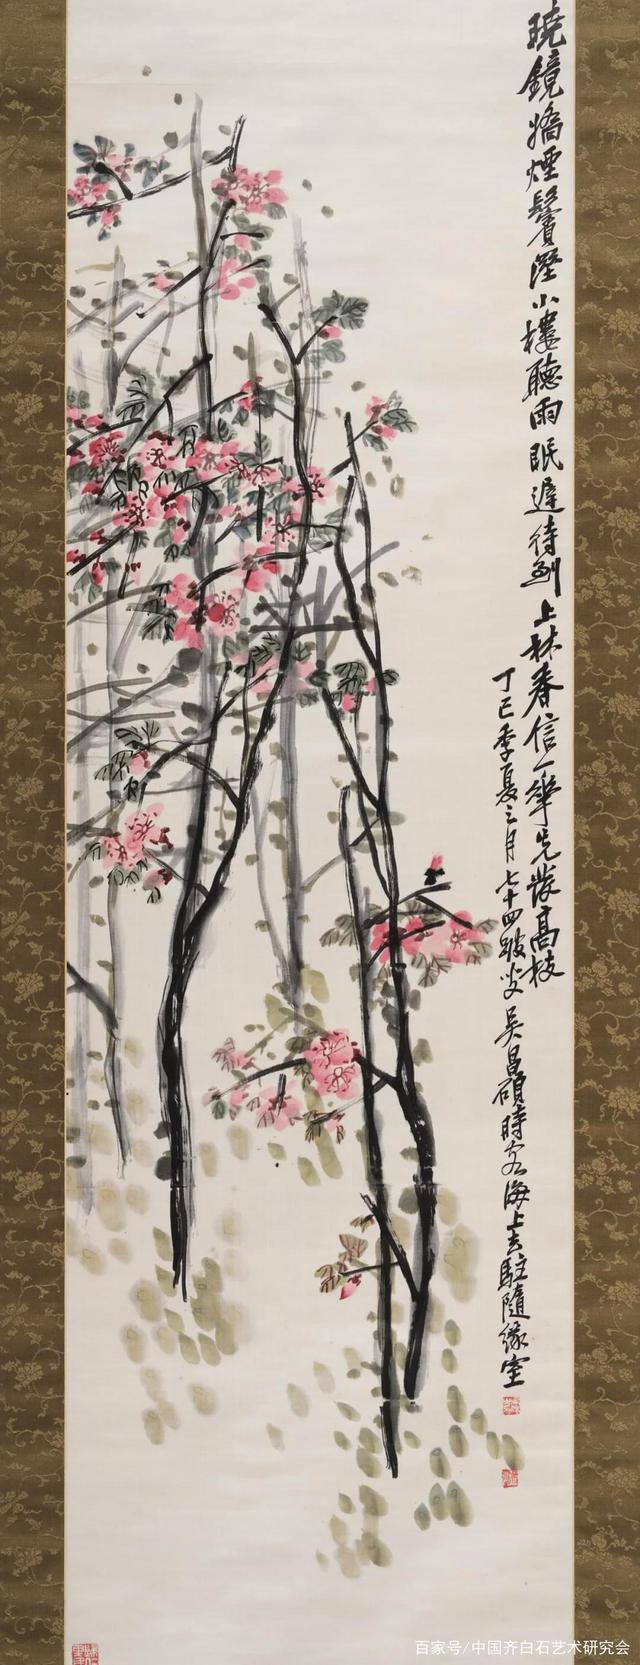 曉鏡搊煙鬢溼小樓聽雨眠遲待到上林春信一華先發高枝
丁巳季夏之月七十四跛叟吳昌碩時客海上去駐隨緣室
百家号/中国齐白石艺术研究会